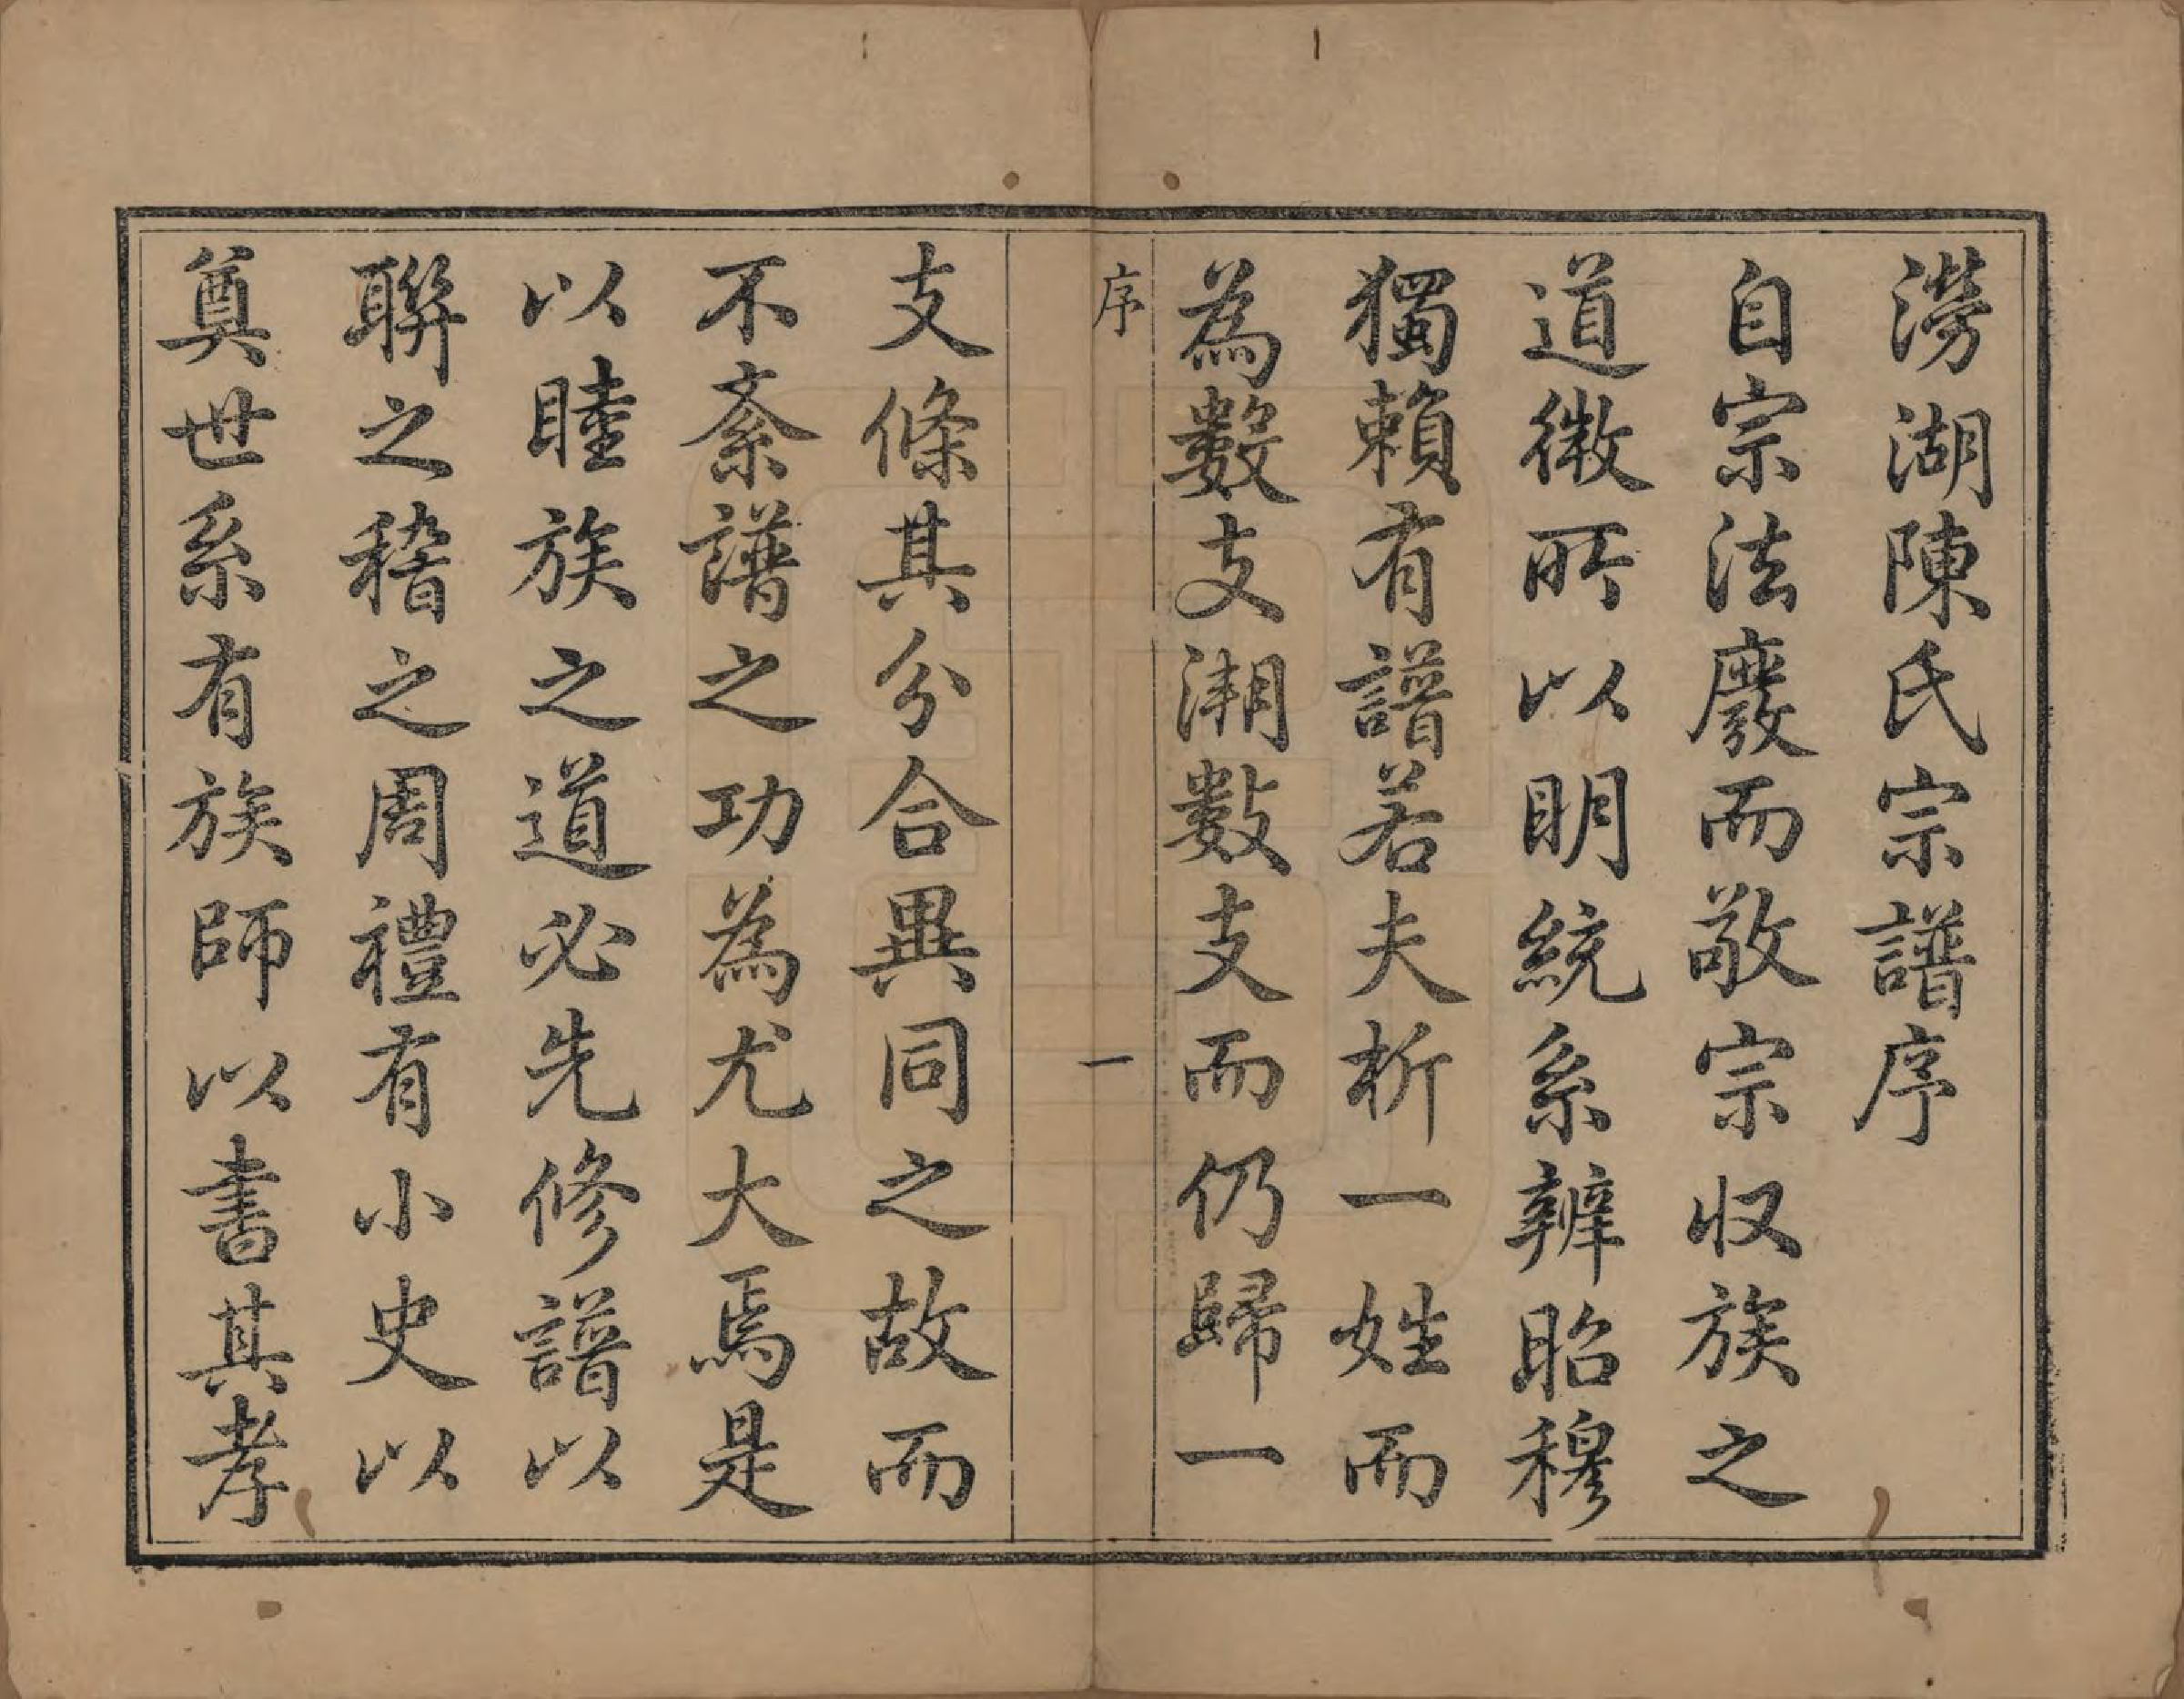 澇湖陳氏宗譜序
自宗法廢而敬宗収族之
道微所以明統系辨昭穆
獨賴有譜若夫析一姓而
為數支溯數支而仍歸一
序
一
支條其分合異同之故而
不紊譜之功為尤大焉是
以睦族之道必先修譜以
聯之稽之周禮有小史以
奠世系有族師以書其孝